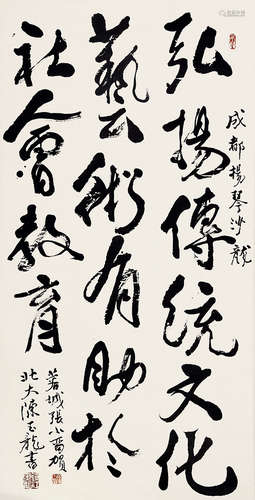 成都揚琴沙龍
弘揚傳統文化
藝術有助於
社會教育
蓉城張小留賀
北大陳玉龍書